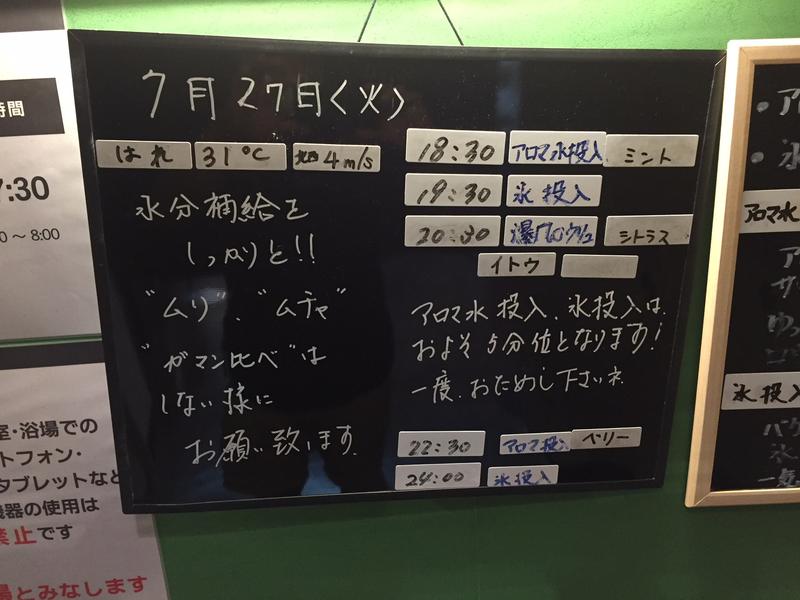 7月27日〈火〉
はれ 31℃ 北西4m/s
水分補給を
しっかりと!!
"ムリ"、"ムチャ"
"ガマン比べ"は
しない様に
お願い致します。
18:30 アロマ水投入 ミント
19:30 氷投入
20:30 シトラス
イトウ
アロマ水投入、氷投入は、
およそ5分位となります!
一度、おためし下さいネ
22:30 アロマ投 ベリー
24:00 氷投入
時間
7:30
0～8:00
室・浴場での
トフォン・
タブレットなど
機器の使用は
禁止です
場とみなします
・ア
・氷
アロマ水
ア
サ
ゆっ
氷投入
バケ
氷
一気